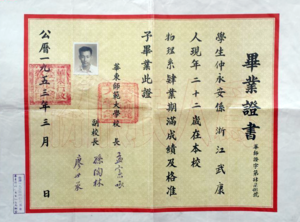 畢業證書
學生仲永安係浙江武康
人現年二十二歲在本校
物理系肄業期滿成績及格准
予畢業此證
華東師範大學校長
孟憲承
副校長
孫陶林
廖世承
公曆一九五三年三月 日